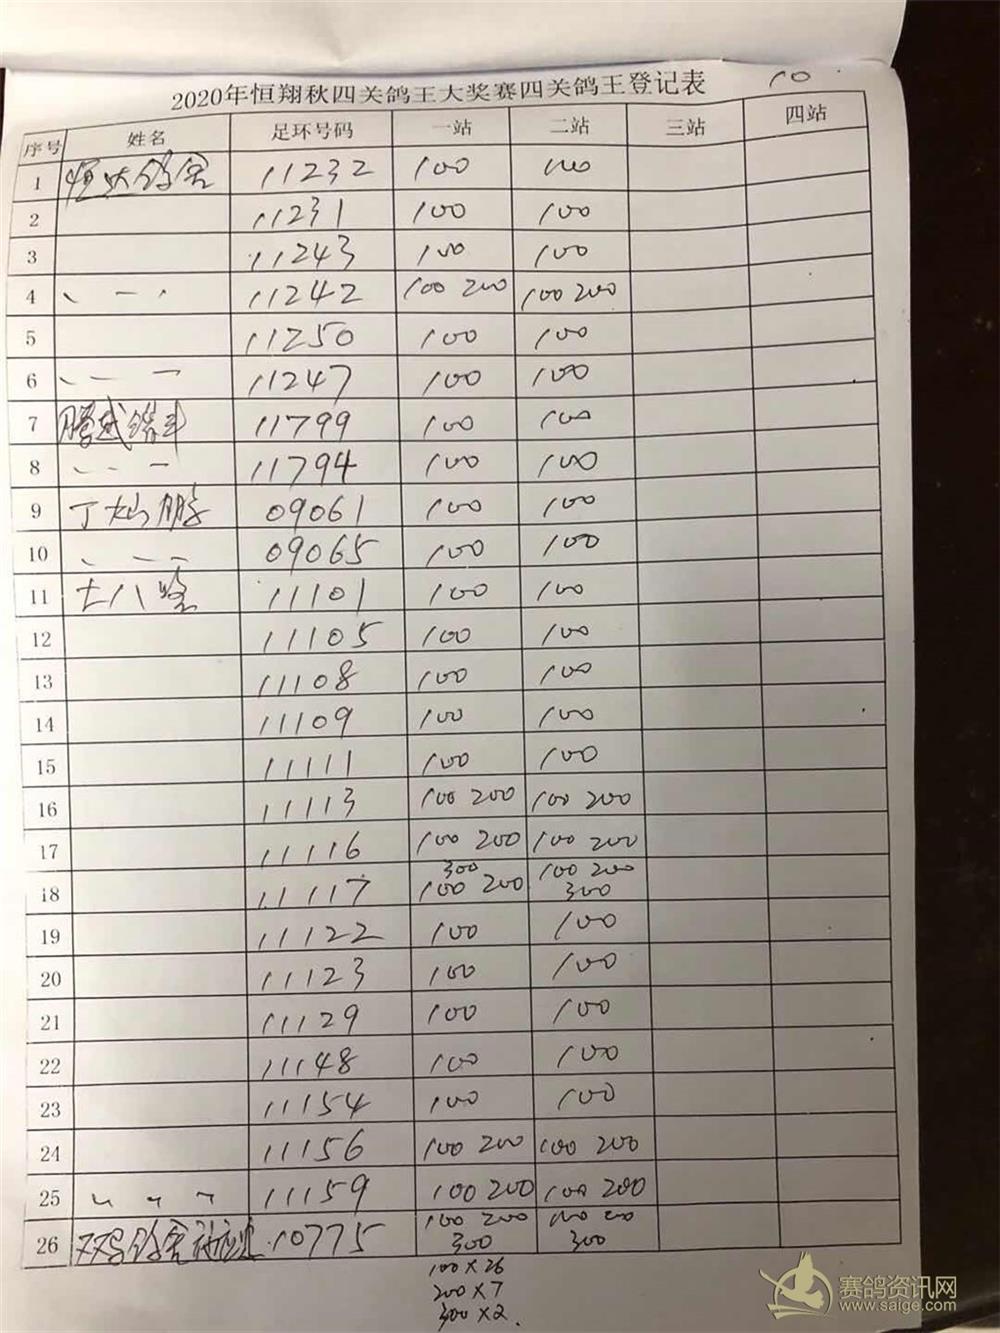 2020年恒翔秋四关鸽王大奖赛四关鸽王登记表 10
序号 姓名 足环号码 一站 二站 三站 四站
1 恒达鸽舍 11232 100 100
2 11231 100 100
3 11243 100 100
4 、 一 、 11242 100 200 100 200
5 11250 100 100
6 、 一 一 11247 100 100
7 11799 100 100
8 、 、 一 11794 100 100
9 丁灿鹏 09061 100 100
10 、 一 一 09065 100 100
11 11101 100 100
12 11105 100 100
13 11108 100 100
14 11109 100 100
15 11111 100 100
16 11113 100 200 100 200
17 11116 100 200 100 200
18 11117 300 100 200 100 200 300
19 11122 100 100
20 11123 100 100
21 11129 100 100
22 11148 100 100
23 11154 100 100
24 11156 100 200 100 200
25 11159 100 200 100 200
26 鸽舍 10775 100 200 300 100 200 300
100×26
200×7
300×2.
赛鸽资讯网
www.saige.com